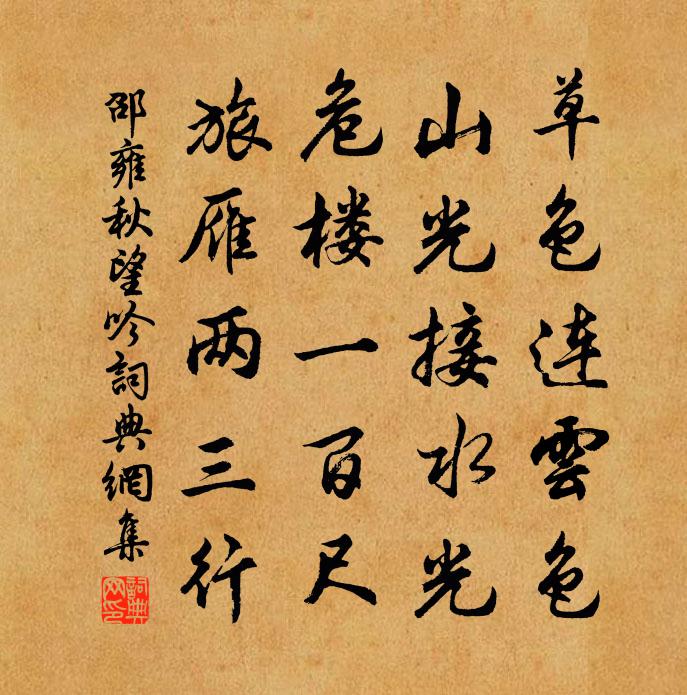 草色連雲色
山光接水光
危楼一百尺
旅雁两三行
邵雍秋望吟詞典網集
詞典网印